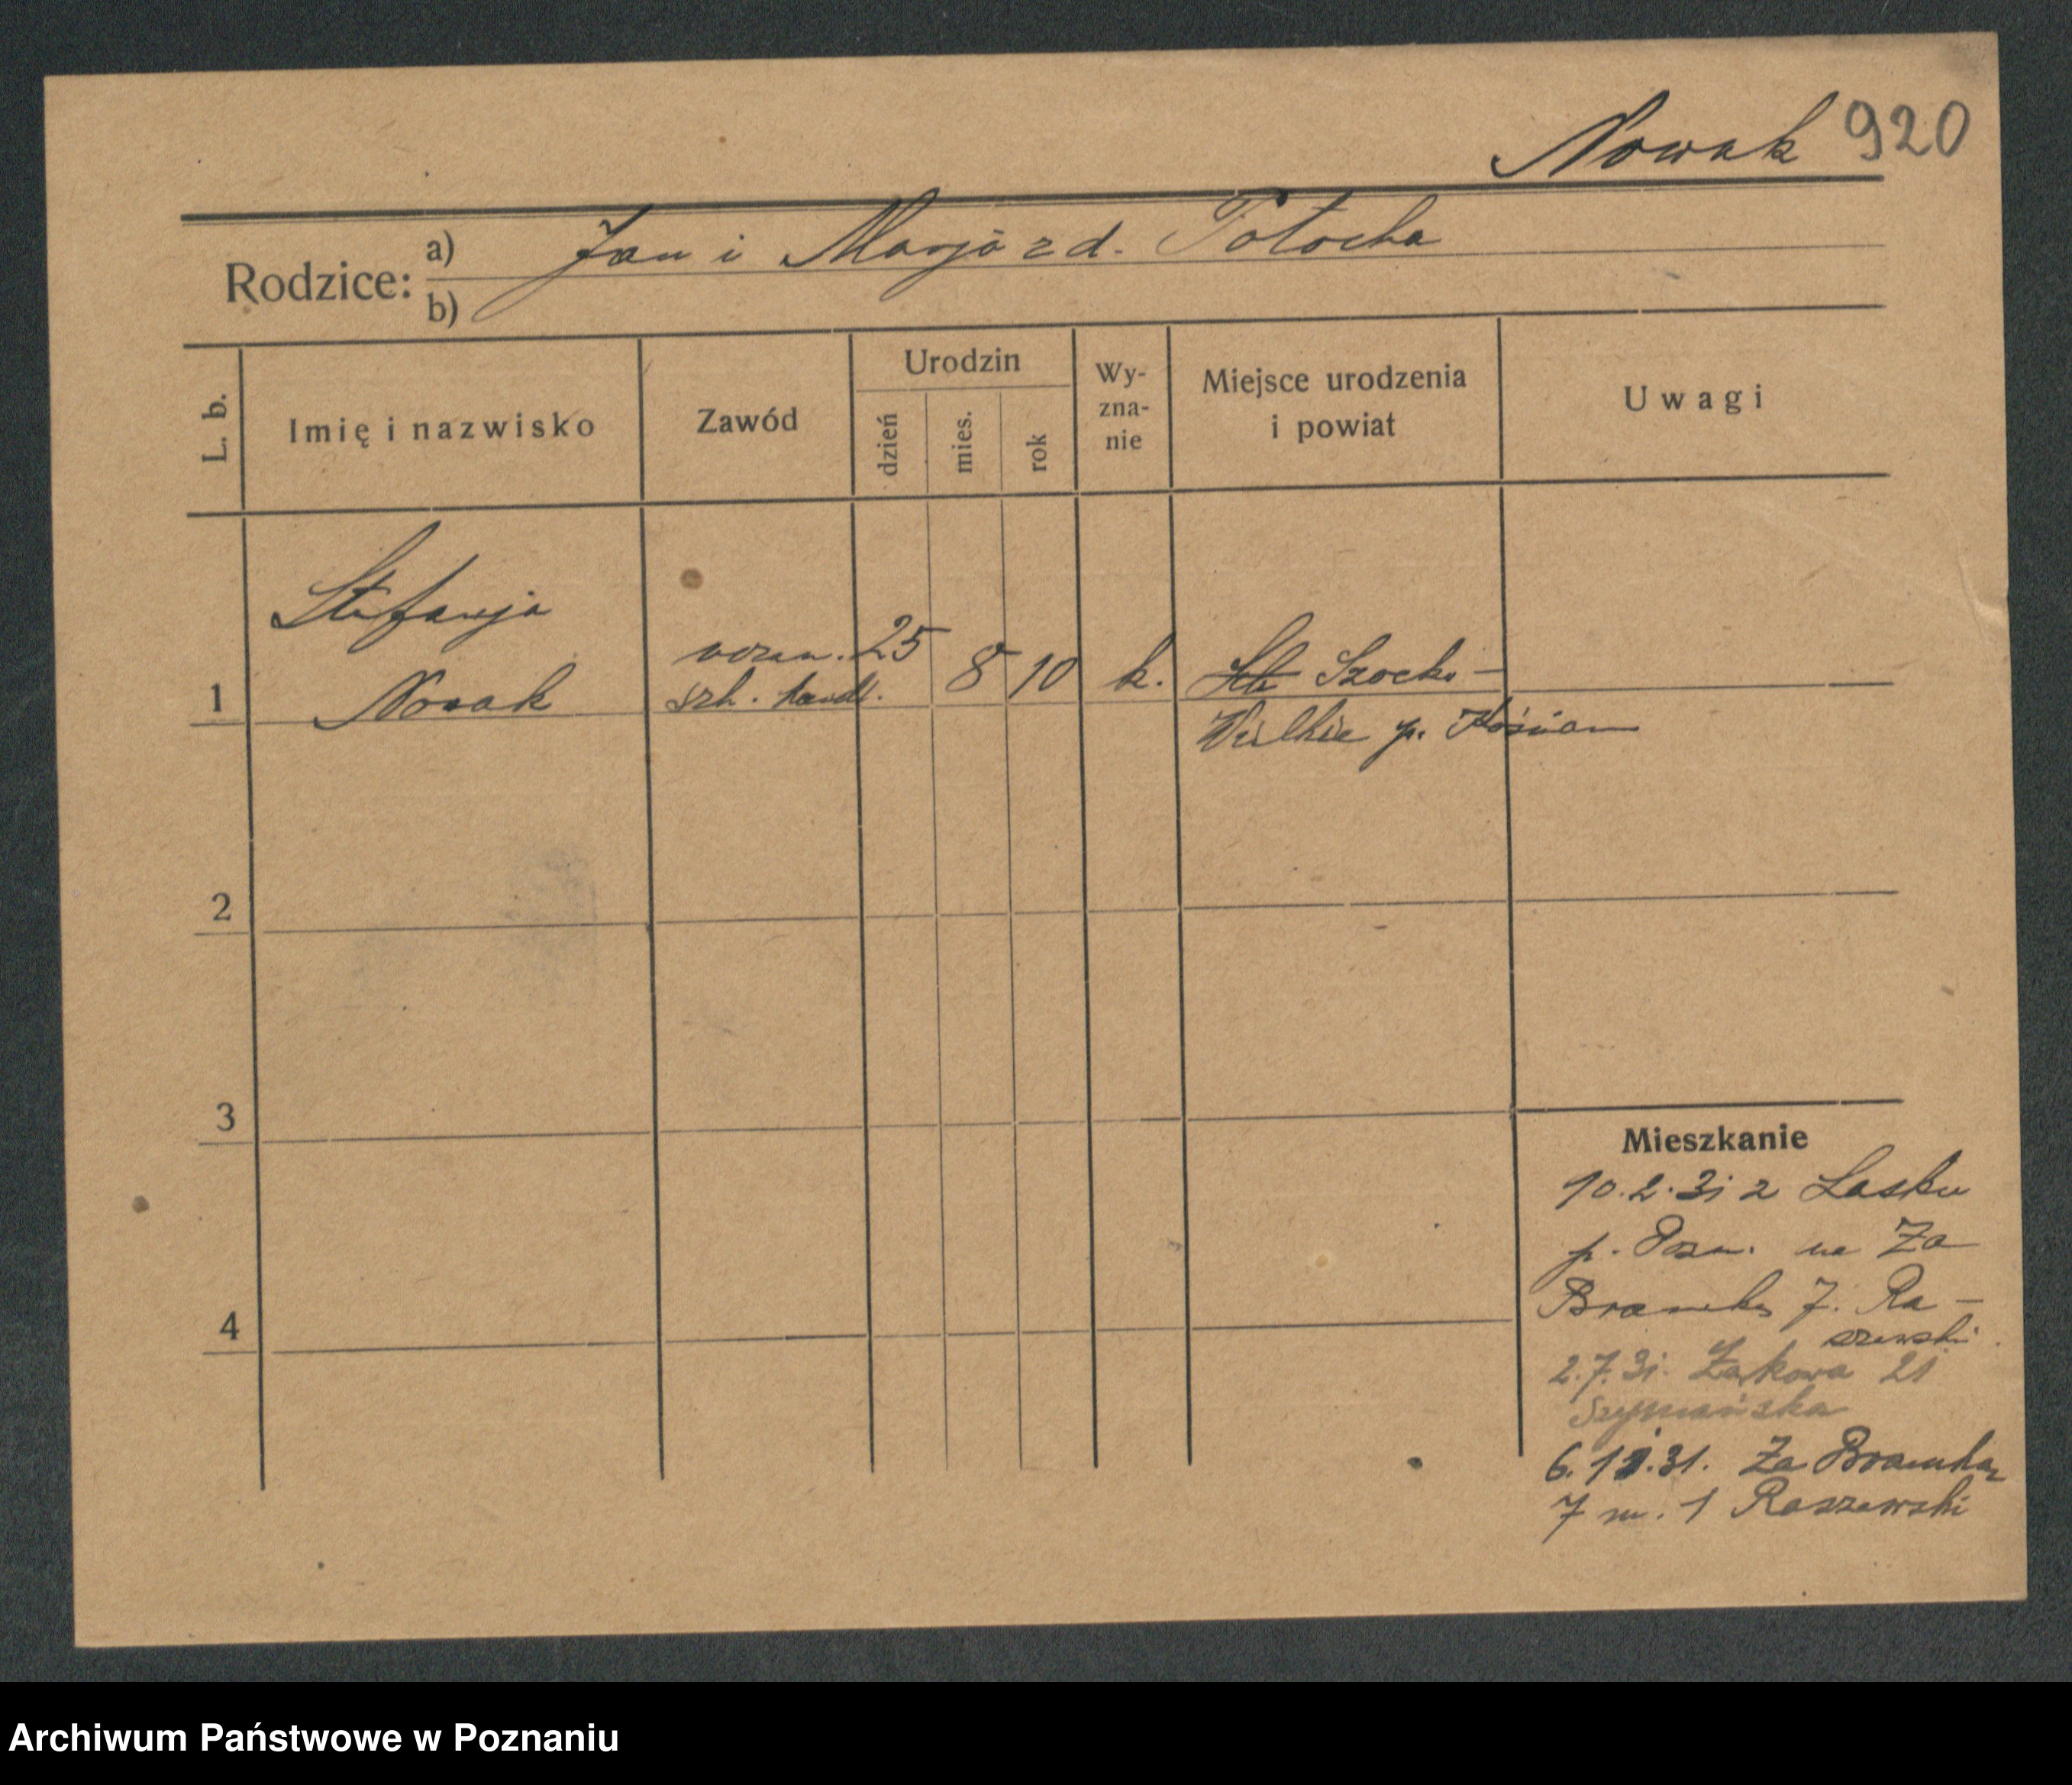 Nowak 920
Rodzice:
a) Jan i Marja z d. Potocka
b)
L. b.
Imię i nazwisko
Zawód
Urodzin
dzień
mies.
rok
Wy-
zna-
nie
Miejsce urodzenia
i powiat
Uwagi
Stefanja
1 Nowak
uczen.
szk. handl.
25 8 10 k.
Wielkie p.
2
3
4
Mieszkanie
10.2.31 z Lasku
p. Pozn. na Za
Bramką 7. Ra-
szewski.
2.7.31. Łąkowa 21
Szymańska
6. .31. Za Bramką
7 m. 1 Raszewski
Archiwum Państwowe w Poznaniu